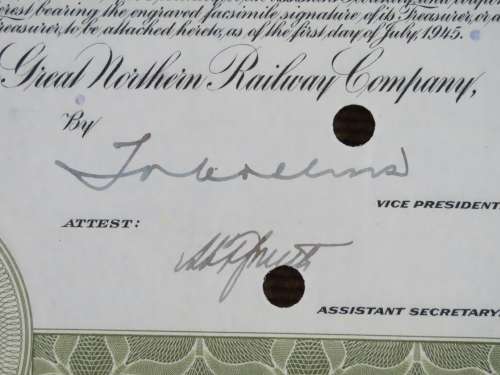 erest bearing the engraved facsimile signature of its Treasurer, or a
Treasurer, to be attached hereto, as of the first day of July, 1945.
Great Northern Railway Company,
By
VICE PRESIDENT
ATTEST:
ASSISTANT SECRETARY.